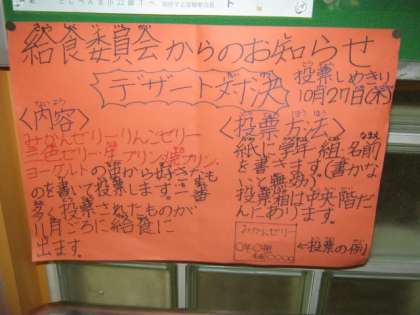 給食委員会からのお知らせ
デザート対決
投票しめきり
10月27日(木)
〈内容〉
みかんゼリー・りんごゼリー
三色ゼリー・
ヨーグルトの中から好きなも
のを書いて投票します。一番
多く投票されたものが
11月ごろに給食に
出ます。
〈投票方法〉
紙に学年・組・名前
を書きます。(書かな
いと無効)
投票箱は中央階だ
んにあります。
みかんゼリー
○年○組
←投票の例